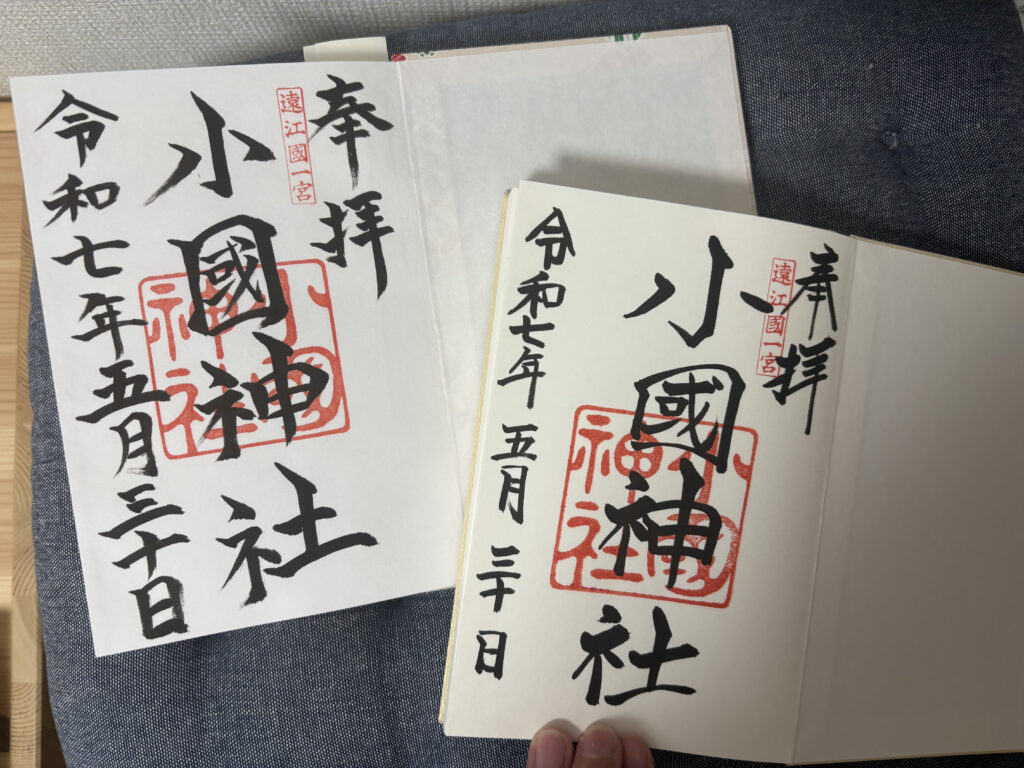 奉拝
遠江國一宮
小國神社
小國神社
令和七年五月三十日
奉拝
遠江國一宮
小國神社
小國神社
令和七年五月三十日